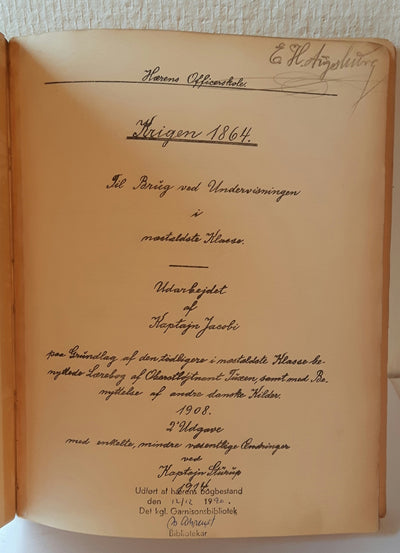 E H. Augsburg
Hærens Officerskole.
Krigen 1864.
Til Brug ved Undervisningen
i
næstældste Klasse.
Udarbejdet
af
Kaptajn Jacobi
paa Grundlag af den tidligere i næstældste Klasse be-
nyttede Lærebog af Oberstløjtnant Tuxen, samt med Be-
nyttelse af andre danske Kilder.
1908.
2' Udgave
med enkelte, mindre væsentlige Ændringer
ved
Kaptajn Stürup
1914.
Udført af hærens bogbestand
den 12/12 1990.
Det kgl. Garnisonsbibliotek
Bibliotekar